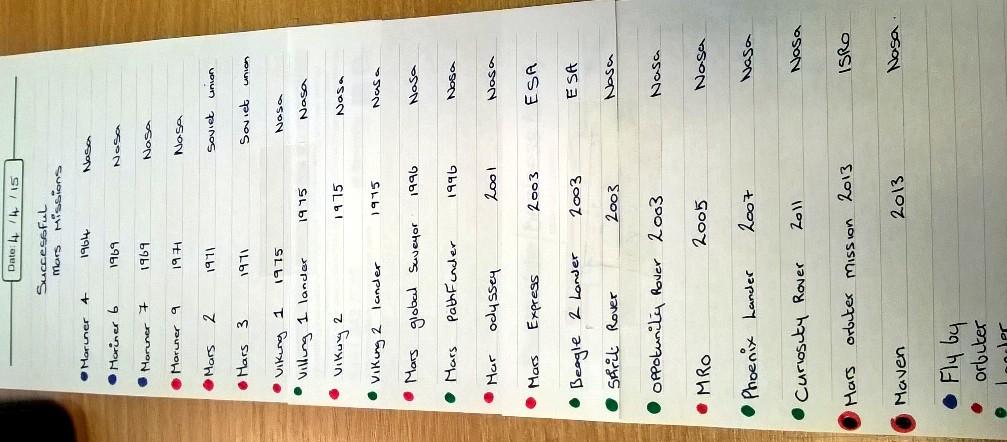 Date: 4 / 4 / 15
Successful
Mars Missions
Mariner 4 1964 Nasa
Mariner 6 1969 Nasa
Mariner 7 1969 Nasa
Mariner 9 1971 Nasa
Mars 2 1971 Soviet union
Mars 3 1971 Soviet union
Viking 1 1975 Nasa
Viking 1 lander 1975 Nasa
Viking 2 1975 Nasa
Viking 2 lander 1975 Nasa
Mars global Surveyor 1996 Nasa
Mars PathFinder 1996 Nasa
Mar odyssey 2001 Nasa
Mars Express 2003 ESA
Beagle 2 Lander 2003 ESA
Spirit Rover 2003 Nasa
oppotunity Rover 2003 Nasa
MRO 2005 Nasa
Phoenix Lander 2007 Nasa
Curiosity Rover 2011 Nasa
Mars orbiter Mission 2013 ISRO
Maven 2013 Nasa.
Fly by
orbiter